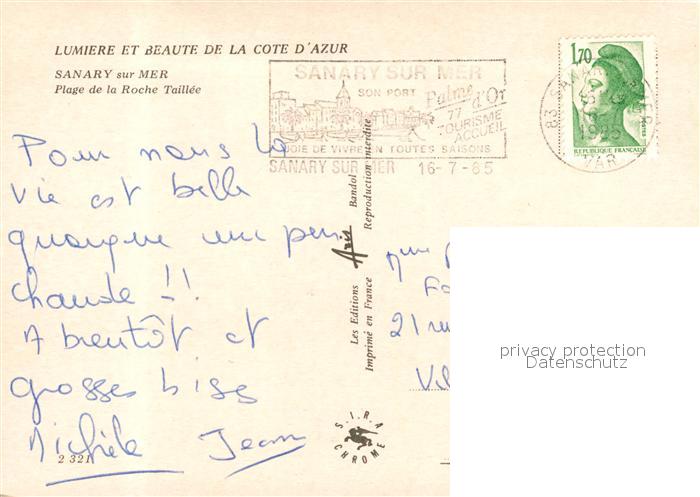 LUMIERE ET BEAUTE DE LA COTE D'AZUR
SANARY sur MER
Plage de la Roche Taillée
SANARY SUR MER
SON PORT
Palme d'Or
77
TOURISME
ACCUEIL
JOIE DE VIVRE EN TOUTES SAISONS
SANARY SUR MER 16-7-85
1,70
REPUBLIQUE FRANÇAISE
83 SANARY SUR MER
1985
VAR
Pour nous la
vie est belle
quoique un peu
chaude !!
A bientôt et
grosses bises
Michèle Jean
2 321
Les Editions Aris Bandol
Imprimé en France Reproduction interdite
S.I.R.A
CHROME
Mme
21
privacy protection
Datenschutz